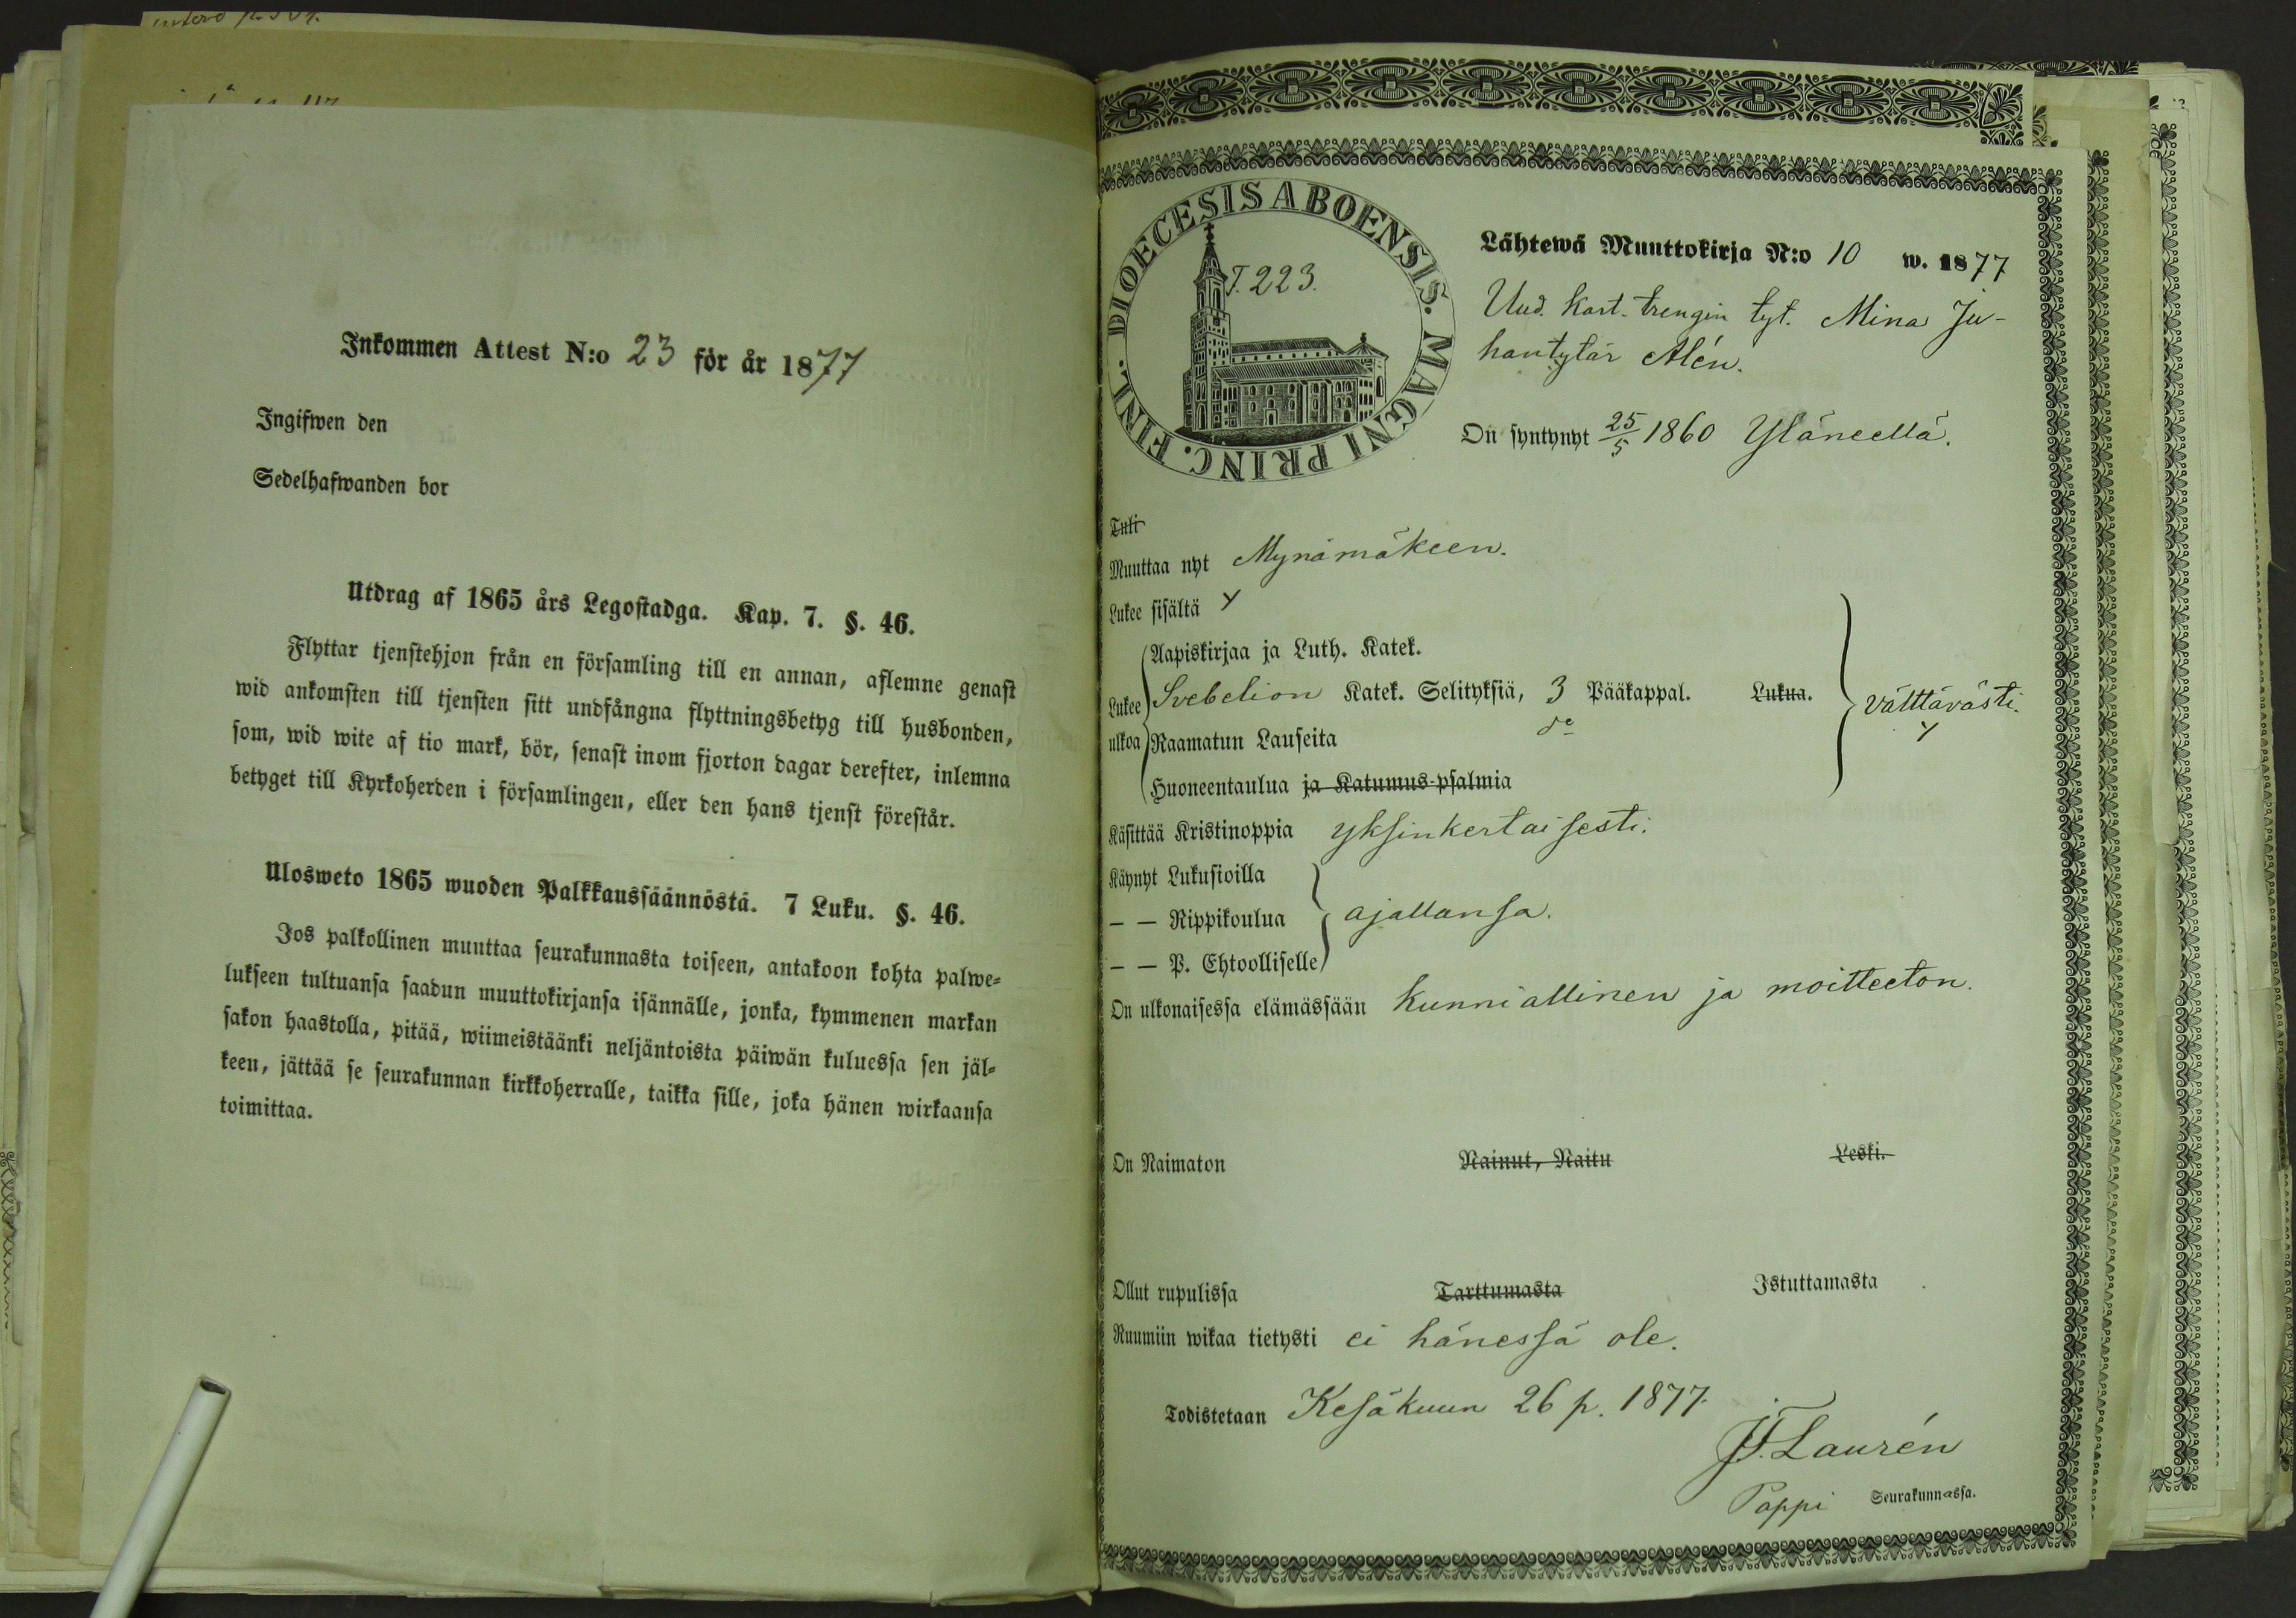 Inkommen Attest N:o 23 för år 1877
Ingifwen den
Sedelhafwanden bor
Utdrag af 1865 års Legostadga. Kap. 7. §. 46.
Flyttar tjenstehjon från en församling till en annan, aflemne genast
wid ankomsten till tjensten sitt undfångna flyttningsbetyg till husbonden,
som, wid wite af tio mark, bör, senast inom fjorton dagar derefter, inlemna
betyget till Kyrkoherden i församlingen, eller den hans tjenst förestår.
Ulosweto 1865 wuoden Palkkaussäännöstä. 7 Luku. §. 46.
Jos palkollinen muuttaa seurakunnasta toiseen, antakoon kohta palwe-
lukseen tultuansa saadun muuttokirjansa isännälle, jonka, kymmenen markan
sakon haastolla, pitää, wiimeistäänki neljäntoista päiwän kuluessa sen jäl-
keen, jättää se seurakunnan kirkkoherralle, taikka sille, joka hänen wirkaansa
toimittaa.
FINL. DIOECESIS ABOENSIS. MAGNI PRINC.
T. 223.
Lähtewä Muuttokirja N:o 10 w. 1877
Uud. kart. trengin tyt. Mina Ju-
hantytär Alén.
On syntynyt 25/5 1860 Yläneellä.
Tuli
Muuttaa nyt Mynämäkeen.
Lukee sisältä
Aapiskirjaa ja Luth. Katek.
Lukee ulkoa Svebelion Katek. Selityksiä, 3 Pääkappal. Lukua. välttävästi.
Raamatun Lauseita do
Huoneentaulua ja Katumus-psalmia
Käsittää Kristinoppia yksinkertaisesti.
Käynyt Lukusioilla
— — Rippikoulua ajallansa.
— — P. Ehtoolliselle
On ulkonaisessa elämässään kunniallinen ja moitteeton.
On Naimaton Nainut, Naitu Leski.
Ollut rupulissa Tarttumasta Istuttamasta
Ruumiin wikaa tietysti ei hänessä ole.
Todistetaan Kesäkuun 26 p. 1877.
Laurén
Pappi Seurakunnassa.